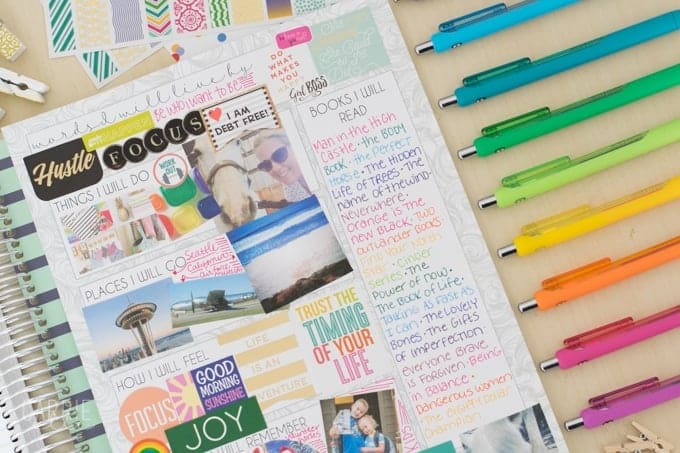 words I will live by
BE WHO I WANT TO BE
DO WHAT MAKES YOU HAPPY
Girl BOSS
Hustle
FOCUS
I AM DEBT FREE!
THINGS I WILL DO
WORK OUT
PLACES I WILL GO
Seattle
California
air force museum
HOW I WILL FEEL
FOCUS
GOOD MORNING SUNSHINE
JOY
LIFE IS AN ADVENTURE
TRUST THE TIMING OF YOUR LIFE
I WILL REMEMBER
BOOKS I WILL READ
Man in the High
Castle • the Body
Book • the Perfect
Horse • The Hidden
Life of Trees • The
name of the wind •
Neverwhere •
orange is the
new Black • Two
outlander Books
Find Your North
Star • Ginger
Series • The
Power of now •
The Book of Life •
Talking As Fast As
I Can • The Lovely
Bones • The Gifts
of imperfection
Everyone Brave
is Forgiven • Being
in Balance •
Dangerous women
The Dollar
Champion